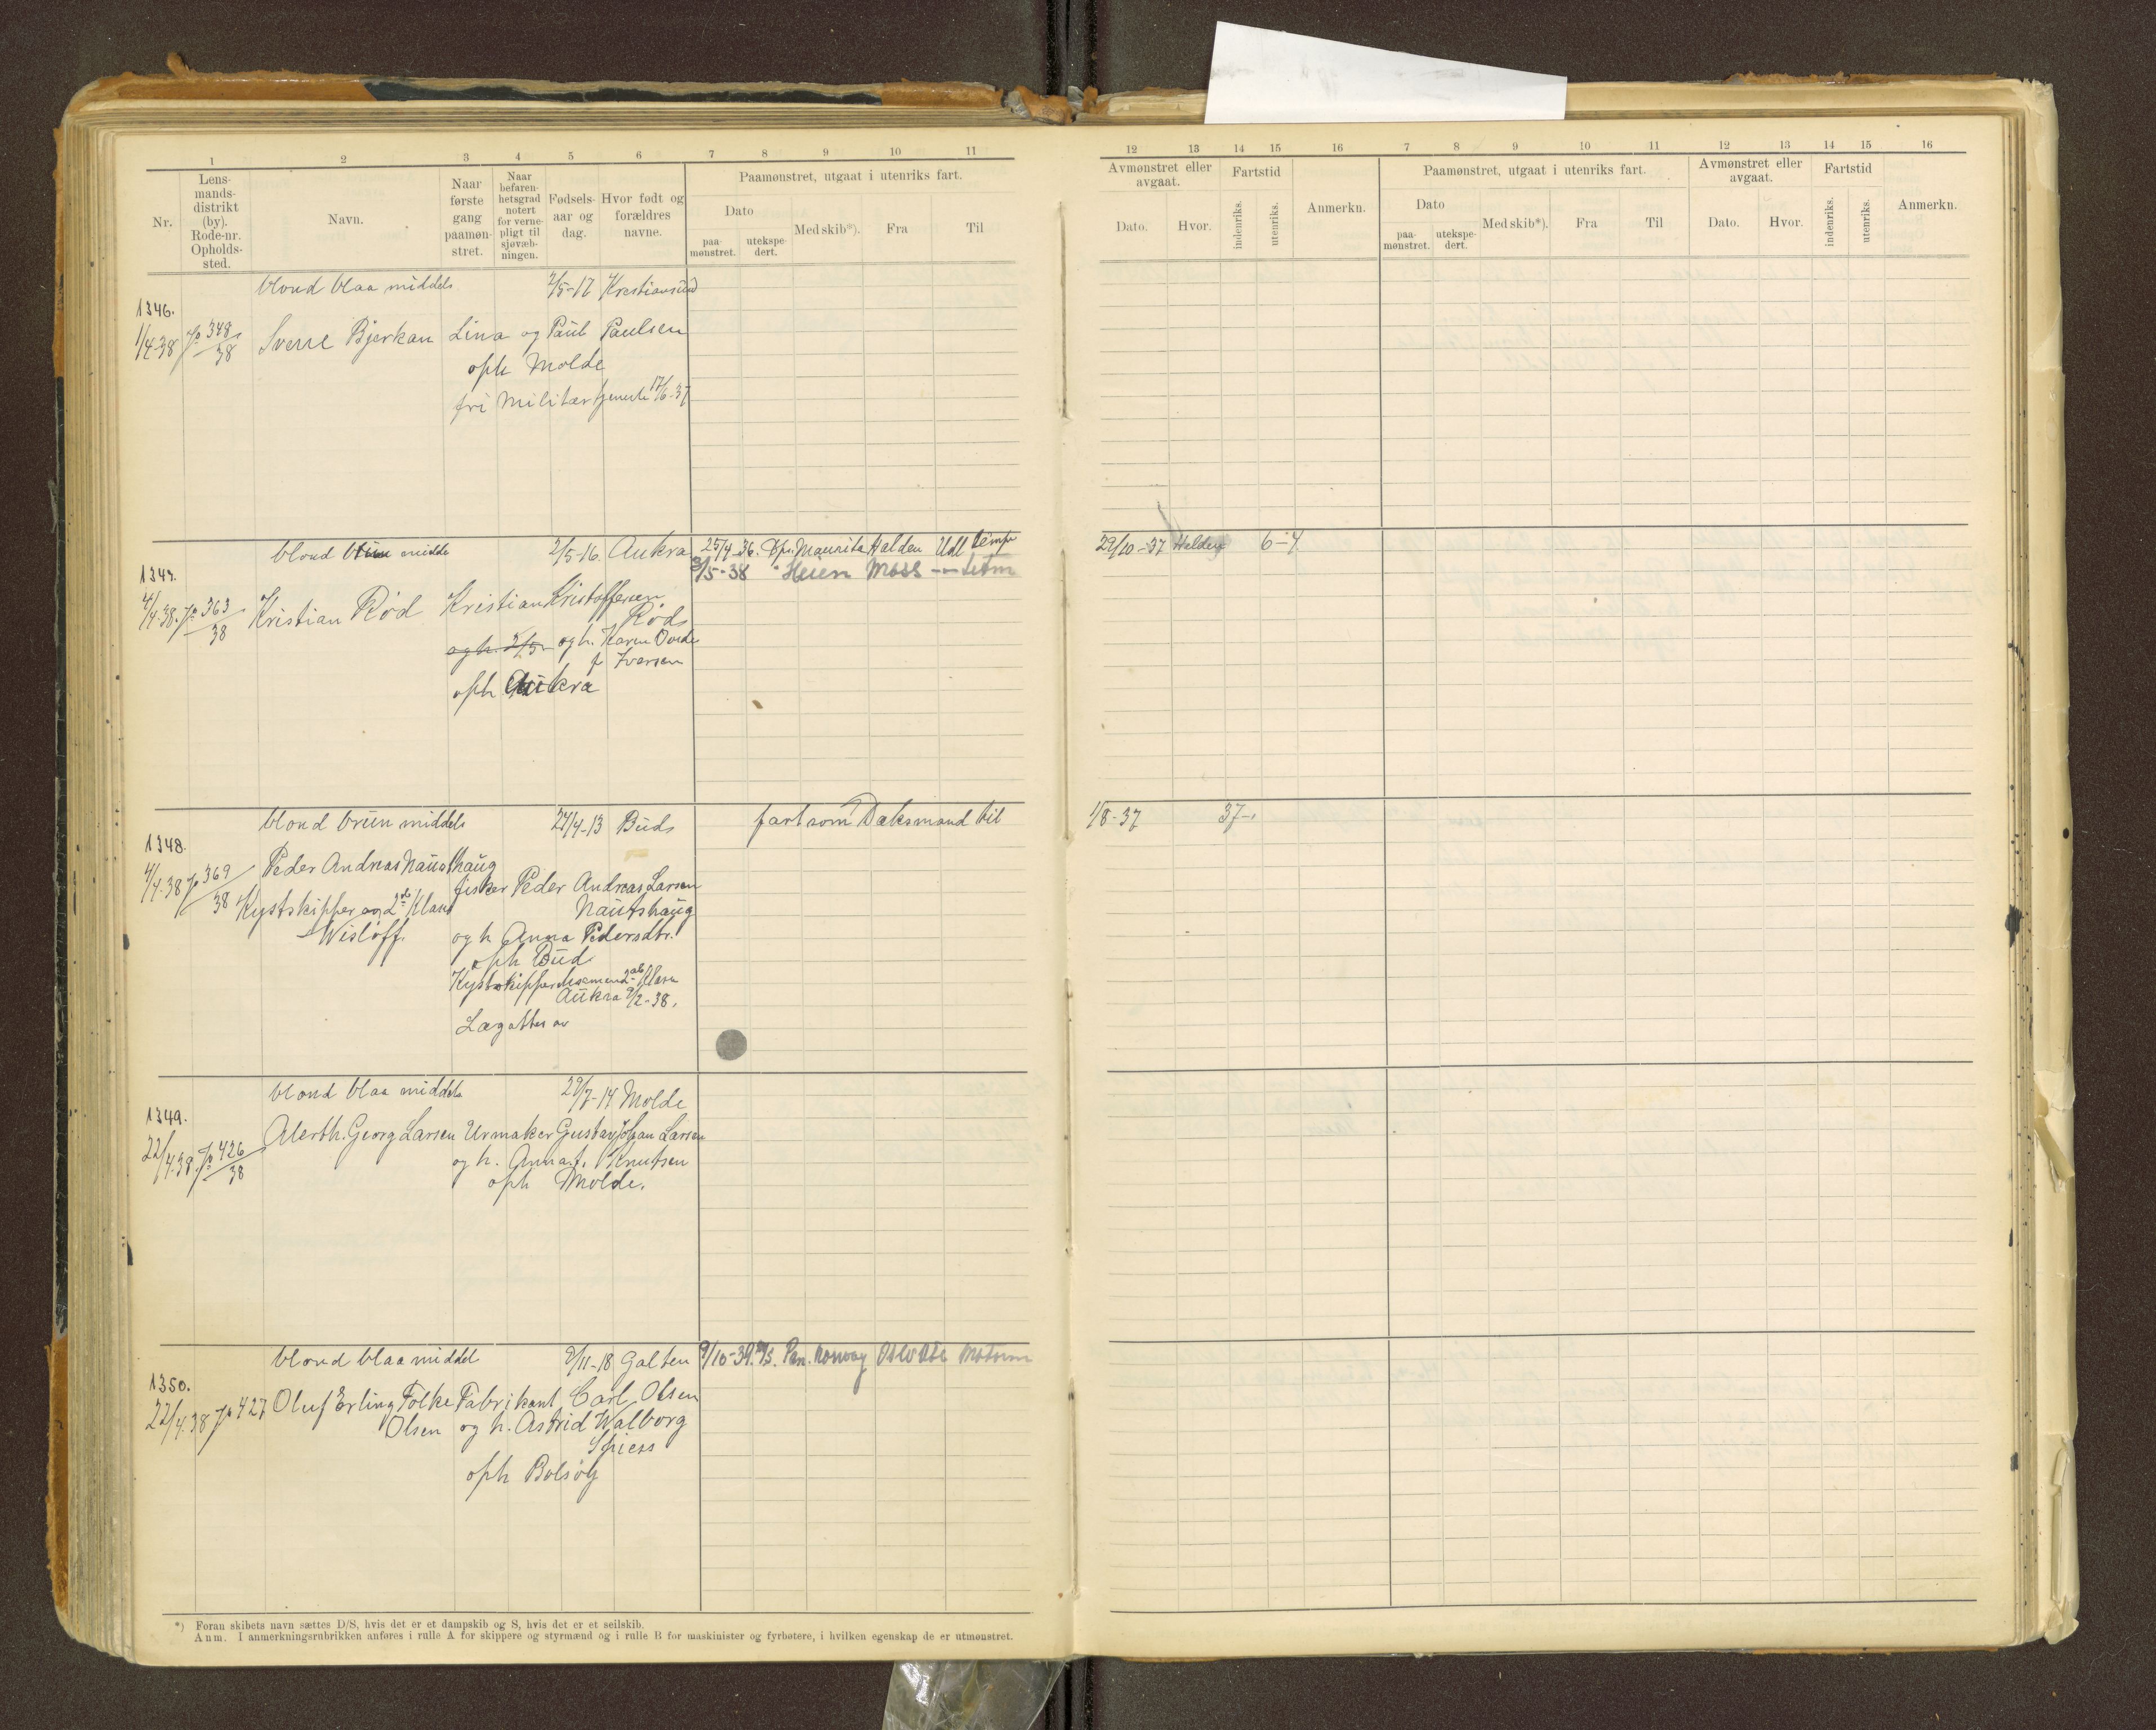 1 2 3 4 5 6 7 8 9 10 11
Nr.
Lens-
mands-
distrikt
(by).
Rode-nr.
Opholds-
sted.
Navn.
Naar
første
gang
paamøn-
stret.
Naar
befaren-
hetsgrad
notert
for verne-
pligt til
sjøvæb-
ningen.
Fødsels-
aar og
dag.
Hvor født og
forældres
navne.
Paamønstret, utgaat i utenriks fart.
Dato
paa-
mønstret.
utekspe-
dert.
Med skib*).
Fra
Til
12 13 14 15 16 7 8 9 10 11 12 13 14 15 16
Avmønstret eller
avgaat.
Dato.
Hvor.
Fartstid
indenriks.
utenriks.
Anmerkn.
Paamønstret, utgaat i utenriks fart.
Dato
paa-
mønstret.
utekspe-
dert.
Med skib*).
Fra
Til
Avmønstret eller
avgaat.
Dato.
Hvor.
Fartstid
indenriks.
utenriks.
Anmerkn.
blond blaa middels 2/5-17 Kristiansund
1346.
1/4-38 Jo 348/38 Sverre Bjerkan Lina og Paul Paulsen
oph Molde
fri Militærtjeneste 17/6-37
blond brun midde 2/5-16. Aukra 25/4-36. Maurita Halden Udl 29/10-37 Halden 6-4
3/5-38 Moss
1347.
4/4-38. Jo 363/38 Kristian Rød Kristian Kristoffersen
Røds
og h. 2/5 og h. Karen
f Iversen
oph Aukra
blond brun middels 27/4-13 Buds fart som Dæksmand til 1/8-37 37-
1348.
4/4-38 Jo 369/38 Peder Andreas Nautshaug
fisker Peder Andreas Larsen
Kystskipper og 2de Klass Nautshaug
Wisløff. og h Anna Pedersdtr.
oph Bud
Aukra 9/2-38.
Lægattes av
blond blaa middels 29/7-14 Molde
1349.
22/4-38. Jo 426/38 Alerth. Georg Larsen Urmaker Gustav Johan Larsen
og h. Anna f. Knutsen
oph Molde.
blond blaa middel 9/11-18 Galten 9/10-39. M/S. Pan. Norway Oslo
1350.
22/4.38 Jo 427 Oluf Erling Folke Fabrikant Carl Olsen
Olsen og h. Astrid Walborg
Spiess
oph Bolsøy
*) Foran skibets navn sættes D/S, hvis det er et dampskib og S, hvis det er et seilskib.
Anm. I anmerkningsrubrikken anføres i rulle A for skippere og styrmænd og i rulle B for maskinister og fyrbøtere, i hvilken egenskap de er utmønstret.